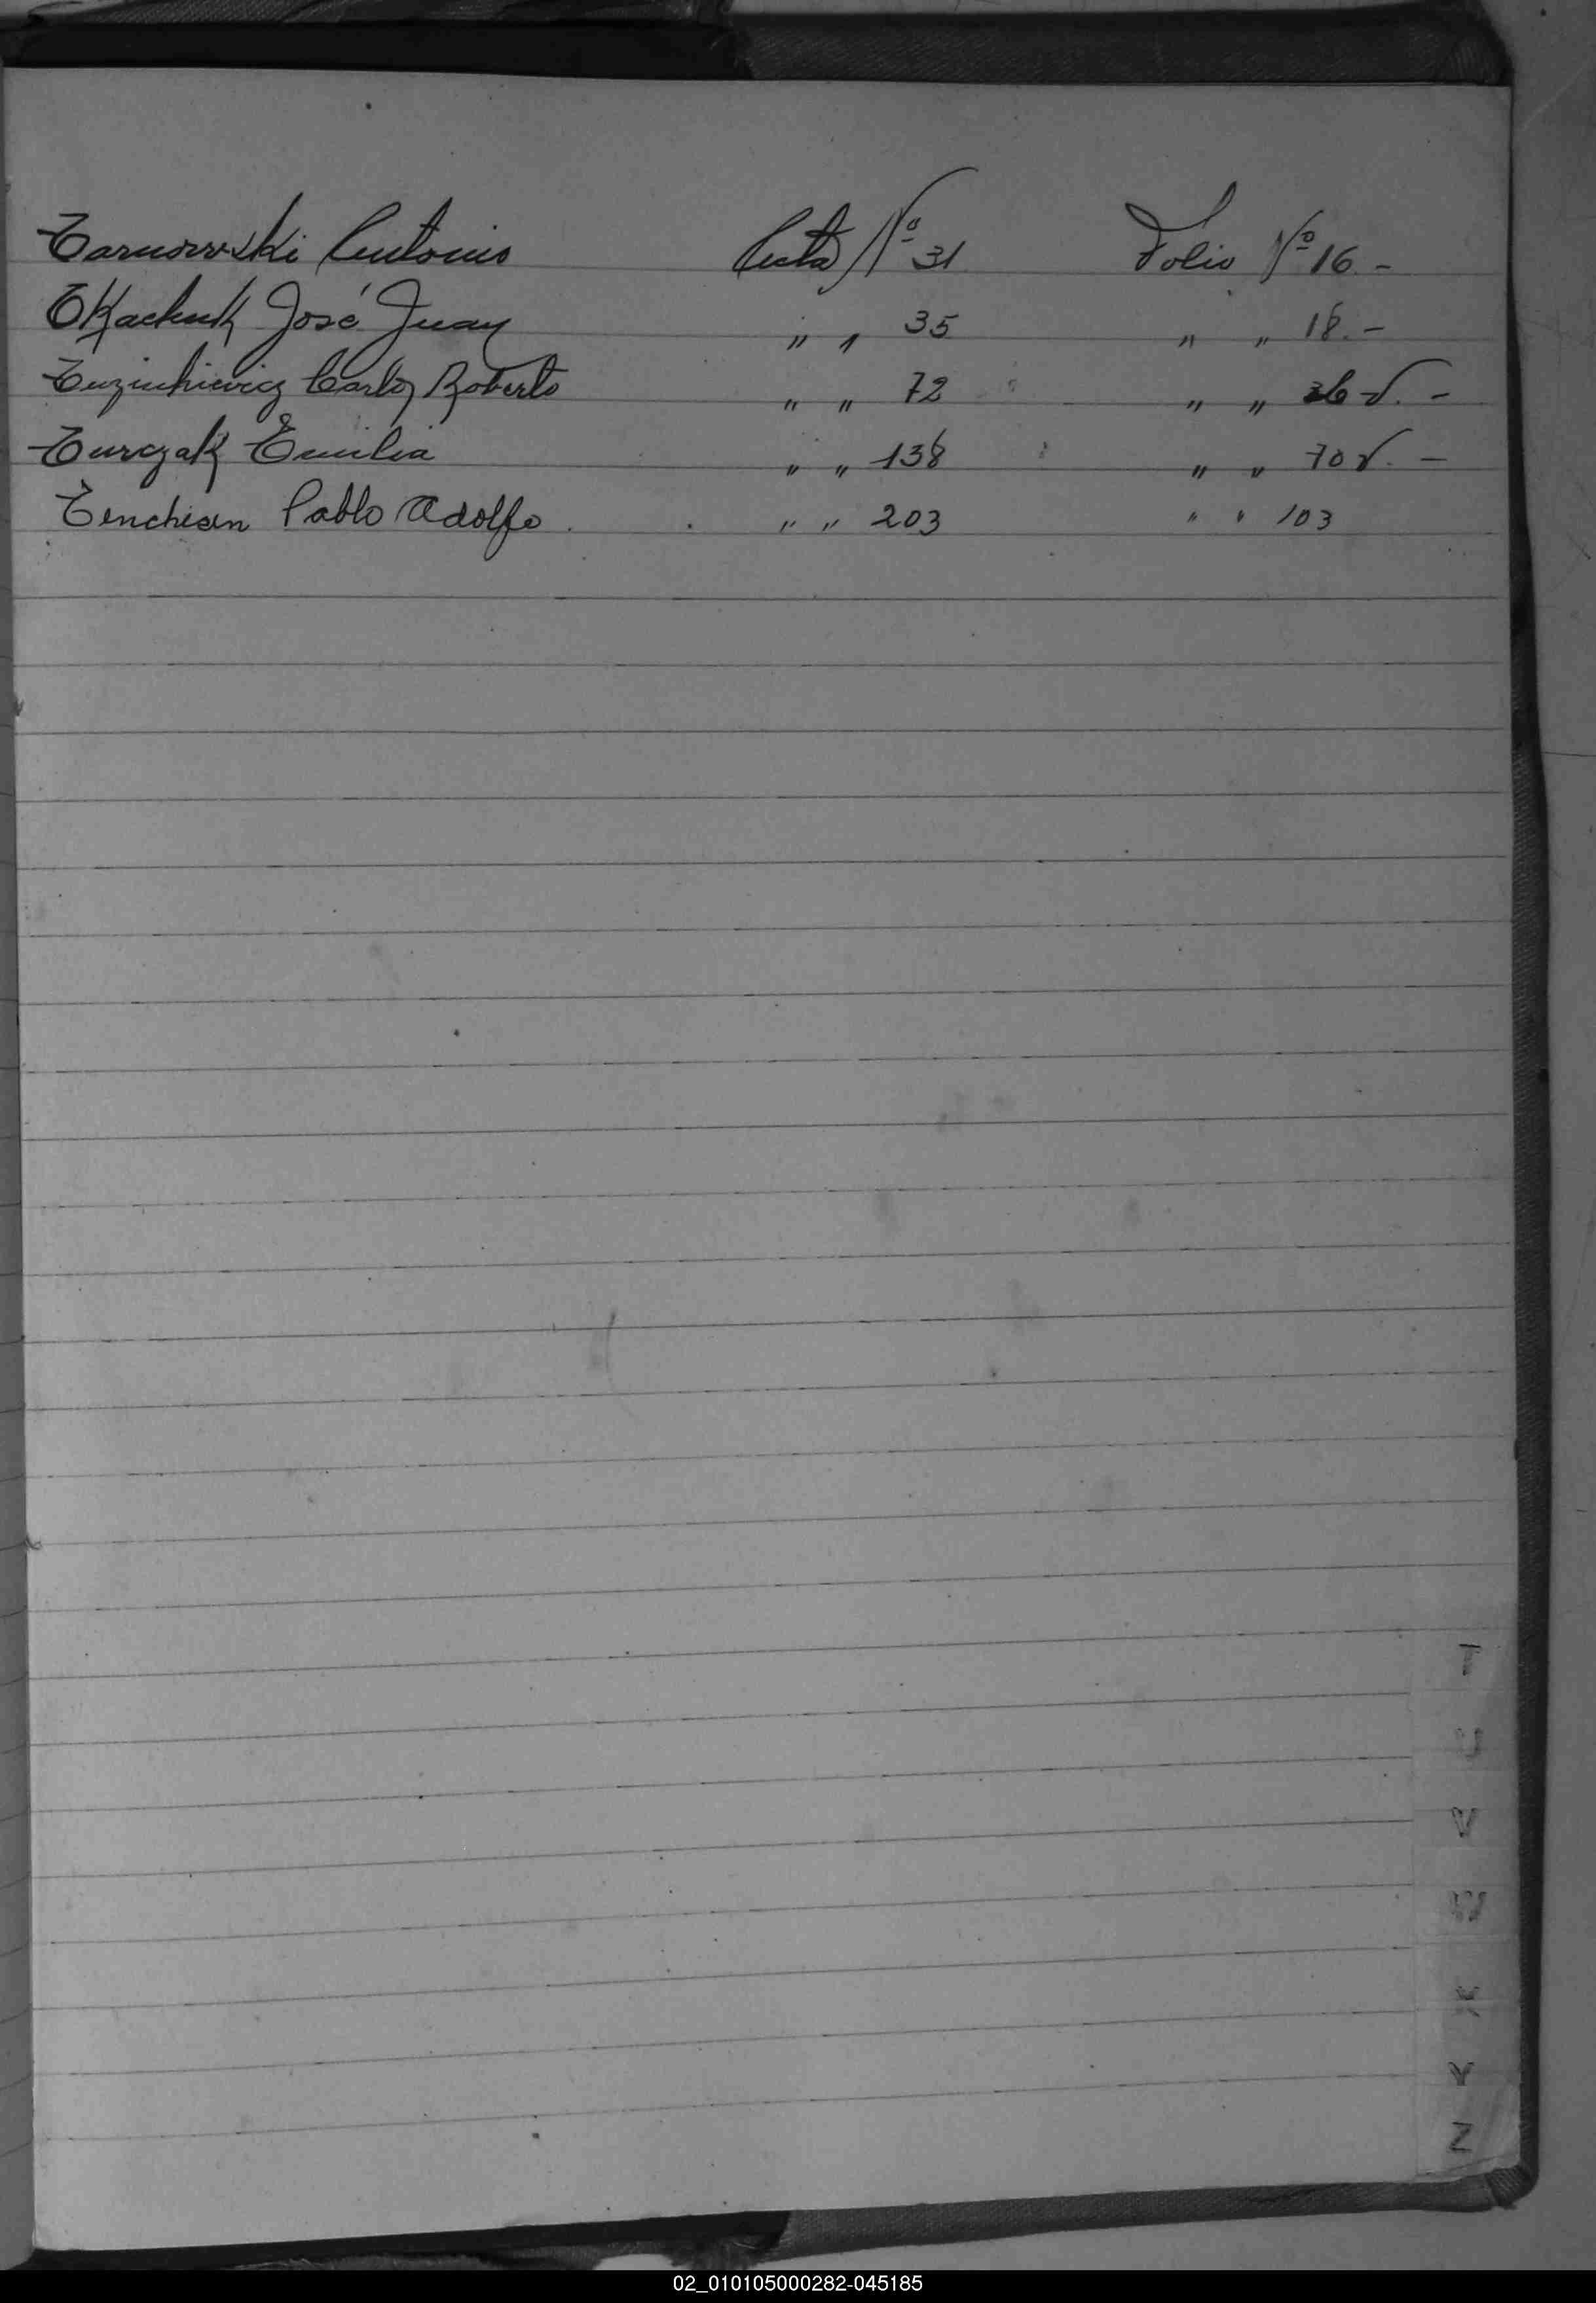 Tarnowski Antonio Acta Nº 31 Folio Nº 16 -
TKachuk José Juan " " 35 " " 18. -
Tuzinkiewicz Carlos Roberto " " 72 " " 36 v. -
Turczak Emilia " " 138 " " 70 v. -
Tenchian Pablo Adolfo . " " 203 " " 103
T
U
V
W
X
Y
Z
02_010105000282-045185